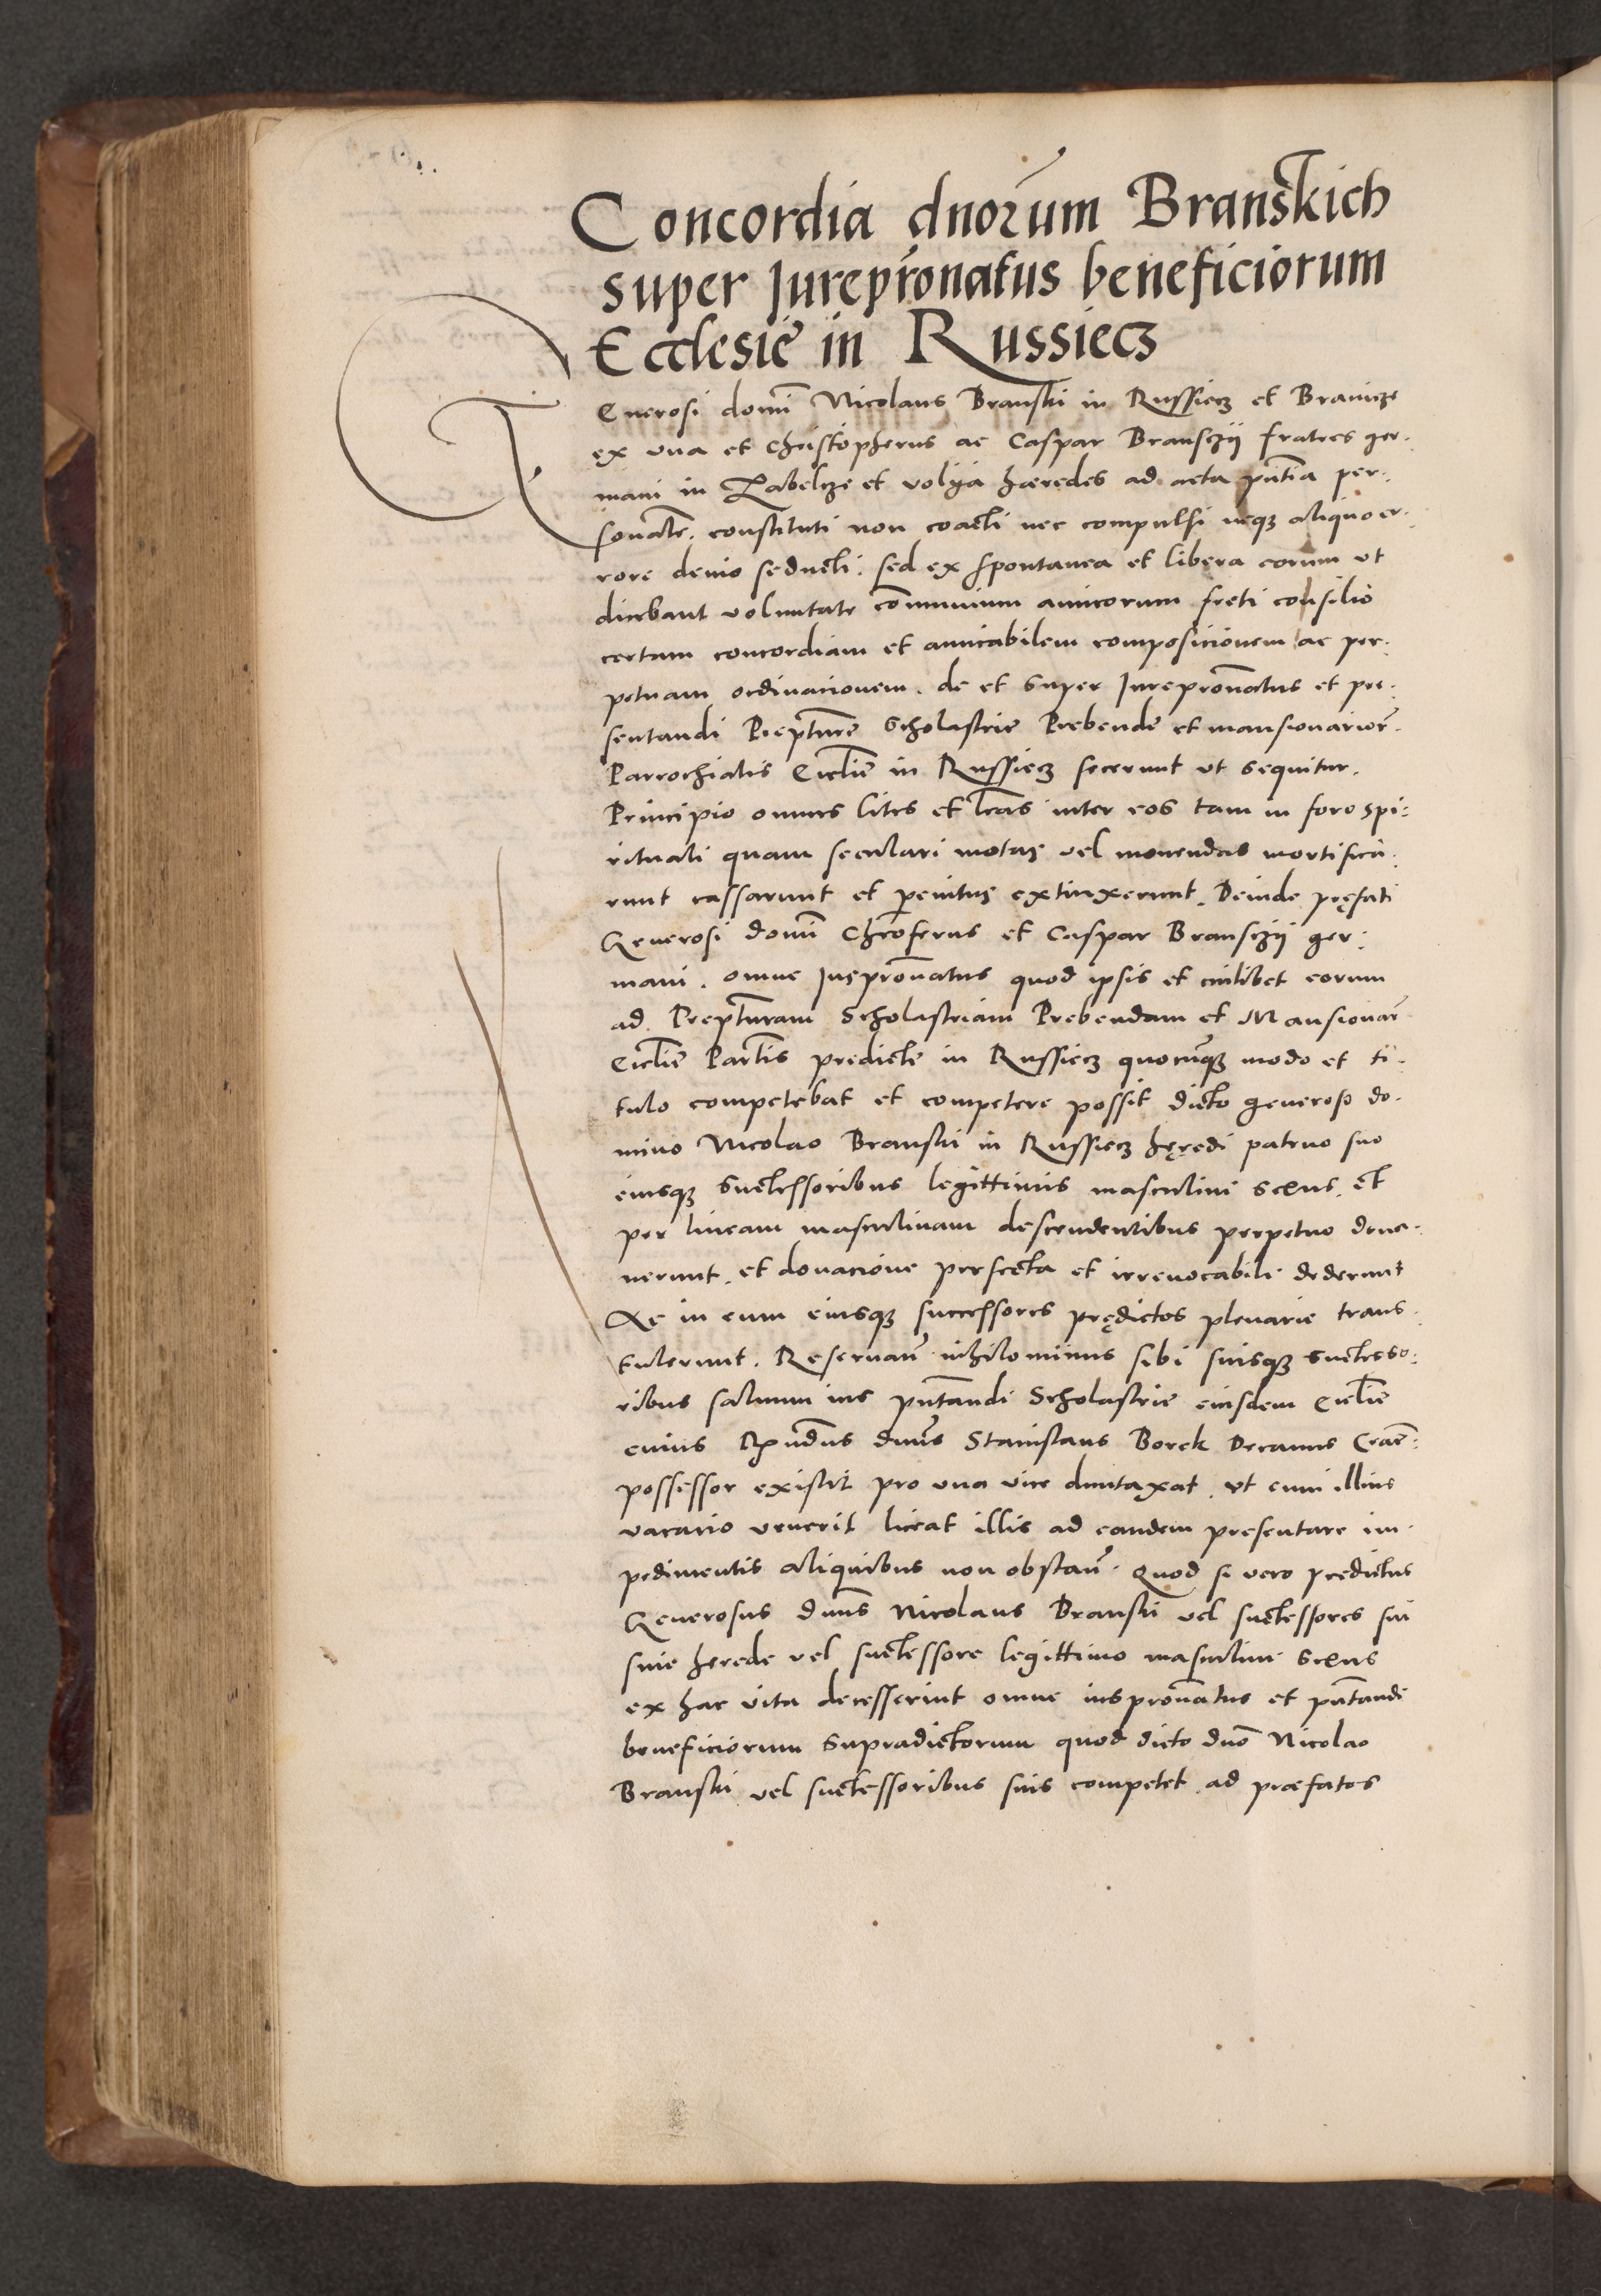 Concordia dnorum Branskich
super Jurepr̃onatus beneficiorum
Ecclesie in Russiecz
Generosi domi͠ Nicolaus Branski in Russiecz et Branicze
ex vna et Christopherus ac Caspar Bransczÿ fratres ger-
mani in Zabelcze et volÿa hæredes ad acta pñtia per-
sonal̃r. constituti non coacti nec compulsi neqʒ aliquo er-
rore deuio seducti. sed ex spontanea et libera eorum vt
dicebant voluntate com̃unium amicorum freti consilio
certam concordiam et amicabilem composicionem ac per-
petuam ordinacionem. de et super Jurepro͠natus et pre-
sentandi Prep̃ture Scholastrie Prebende et mansionarior̃.
Parrochialis Eccl̃ie in Russiecz fecerunt vt sequitur.
Principio omnes lites et l̃ras inter eos tam in foro spi-
rituali quam seculari motas vel mouendas mortifica-
runt cassarunt et penitus extinxerunt. Deinde pręfati
Generosi domi͠ Chr̃oferus et Caspar Bransczÿ ger-
mani. omne Juspro͠natus quod ipsis et cuilibet eorum
ad Prep̃turam Scholastriam Prebendam et Mansionar̃
Eccl̃ie Par̃lis predicte in Russiecz quocũqʒ modo et ti-
tulo competebat et competere possit dicto generoso do-
mino Nicolao Branski in Russiecz hęredi patruo suo
eiusqʒ successoribus legittimis masculini sexus. et
per lineam masculinam descendentibus perpetuo dona-
uerunt. et donacione perfecta et irreuocabili dederunt
Ac in eum eiusqʒ successores prędictos plenarie trans-
tulerunt. Reseruan̄ nihilominus sibi suisqʒ successo-
ribus saluum ius pñtandi Scholastrie eiusdem Eccl̃ie
cuius R͠ndus dnũs Stanislaus Borek Decanus Crac̃:
possessor existit pro vna vice duntaxat. vt cum illius
vacacio venerit liceat illis ad eandem presentare im-
pedimentis aliquibus non obstan̄. Quod si vero predictus
Generosus dnũs Nicolaus Branski vel successores sui
sine herede vel successore legittimo masculini sexus
ex hac vita decesserint omne iuspro͠natus et pñtandi
beneficiorum supradictorum quod dicto dnõ Nicolao
Branski vel successoribus suis competet ad præfatos